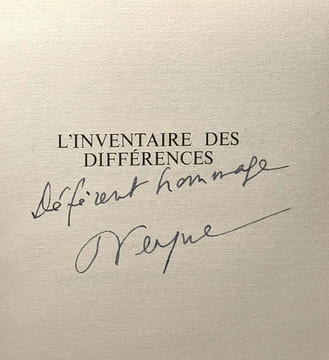 L'INVENTAIRE DES
DIFFÉRENCES
Déférent hommage
Veyne